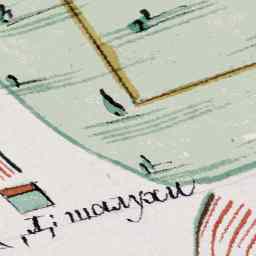 Ді шалухи